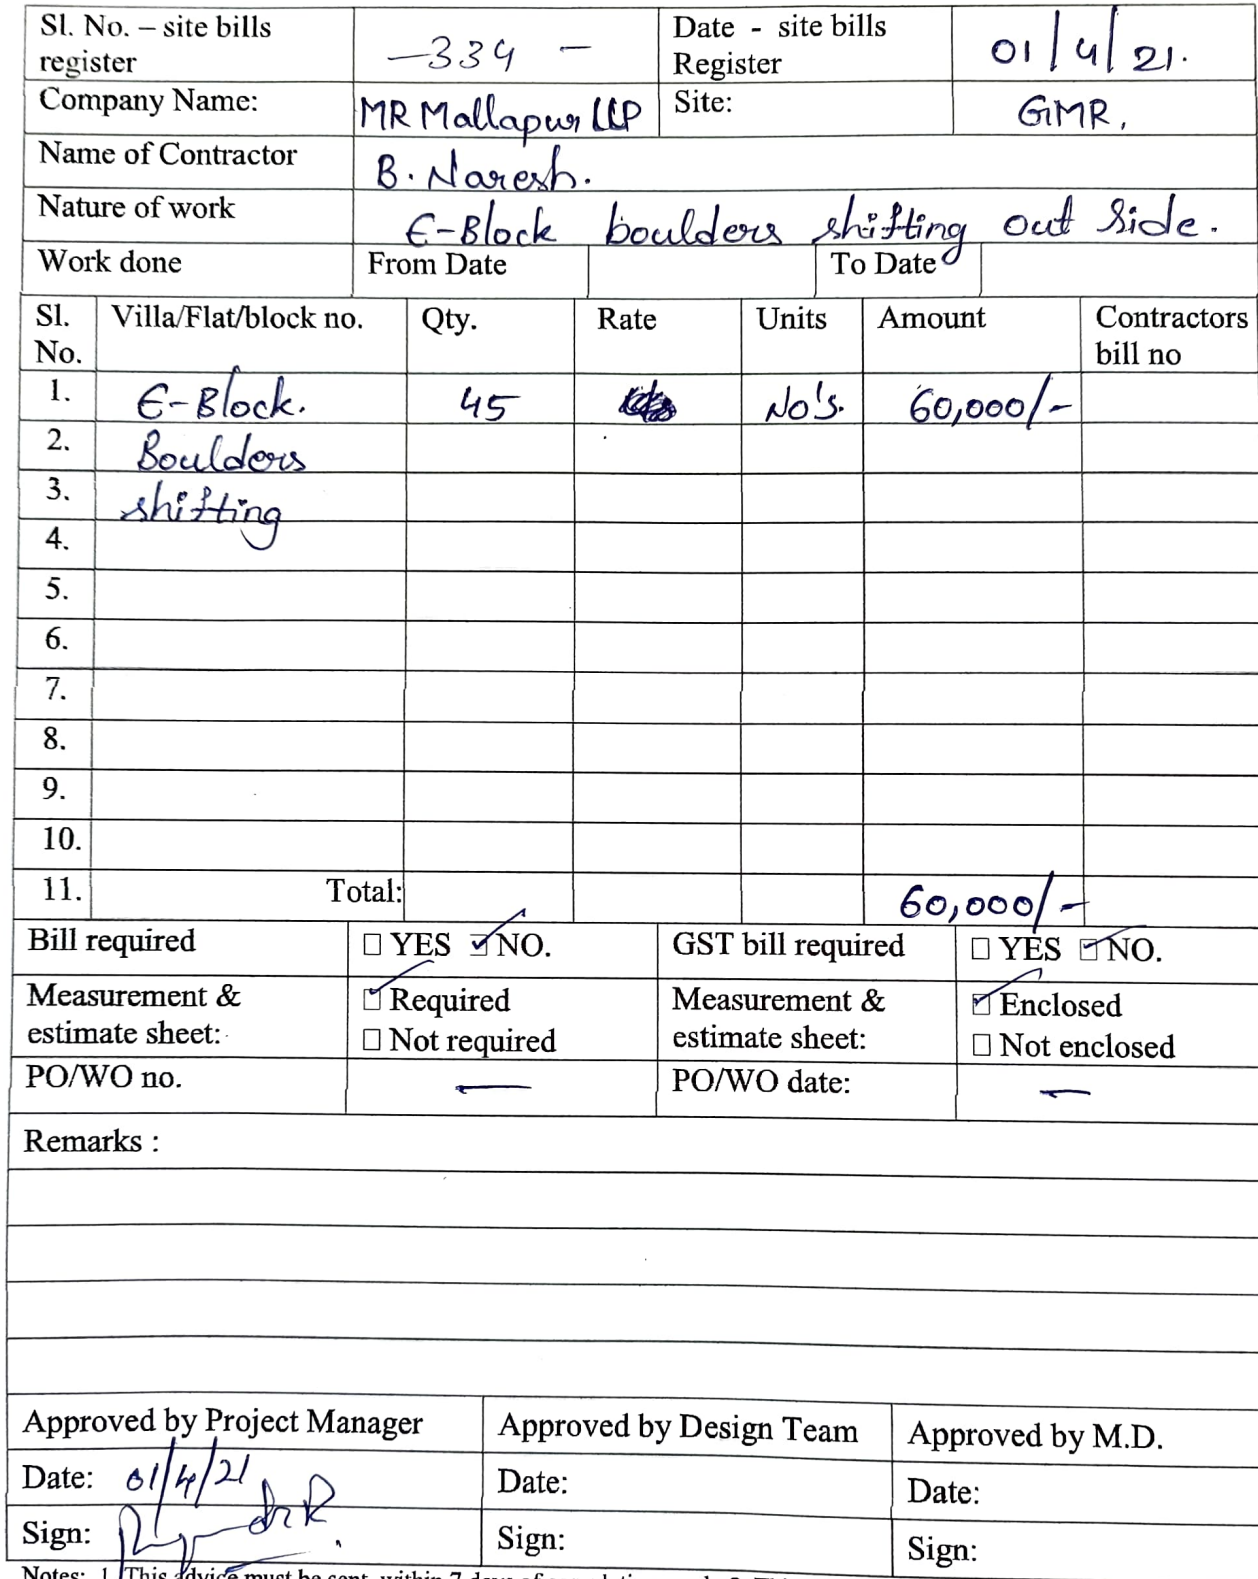 Sl. No. – site bills register
–334 –
Date - site bills Register
01/4/21.
Company Name:
MR Mallapur LLP
Site:
GMR,
Name of Contractor
B. Naresh.
Nature of work
E-Block boulders shifting out side.
Work done
From Date
To Date
Sl. No.
Villa/Flat/block no.
Qty.
Rate
Units
Amount
Contractors bill no
1. E-Block. 45 No's. 60,000/-
2. Boulders
3. shifting
4.
5.
6.
7.
8.
9.
10.
11. Total: 60,000/-
Bill required
☐ YES ☑ NO.
GST bill required
☐ YES ☑ NO.
Measurement & estimate sheet:
☑ Required
☐ Not required
Measurement & estimate sheet:
☑ Enclosed
☐ Not enclosed
PO/WO no. —
PO/WO date: —
Remarks :
Approved by Project Manager
Approved by Design Team
Approved by M.D.
Date: 01/4/21
Date:
Date:
Sign:
Sign:
Sign:
Notes: 1. This advice must be sent within 7 days of